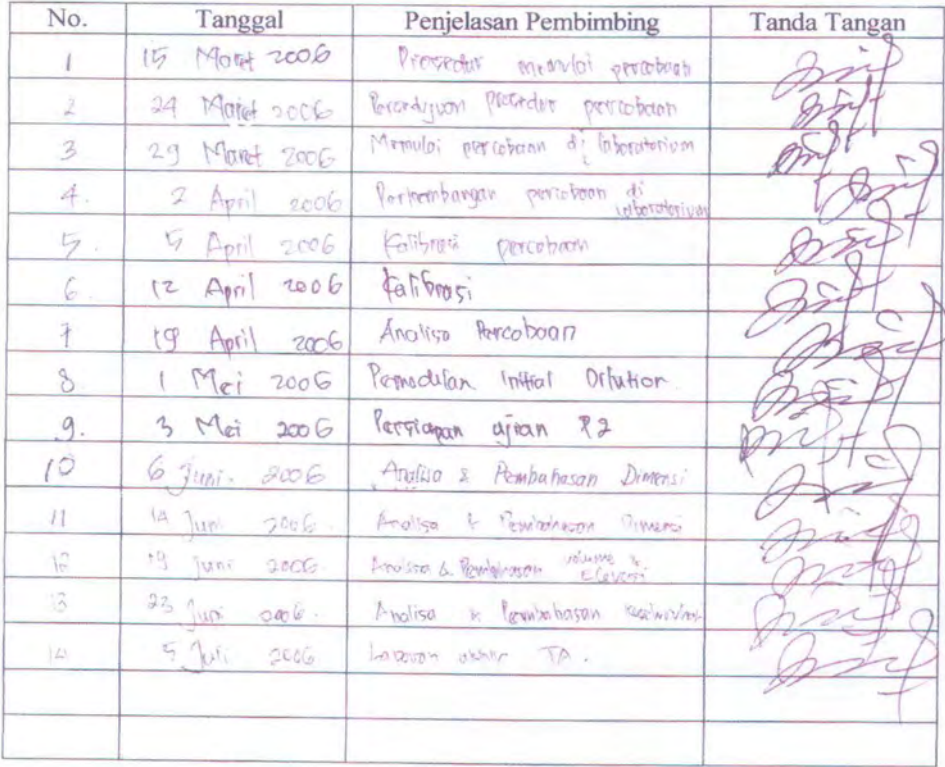 No. Tanggal Penjelasan Pembimbing Tanda Tangan
1 15 Maret 2006 Prosedur memulai percobaan
2 24 Maret 2006 prosedur percobaan
3 29 Maret 2006 Memulai percobaan di laboratorium
4. 2 April 2006 Perkembangan percobaan di laboratorium
5. 5 April 2006 Kalibrasi percobaan
6. 12 April 2006 Kalibrasi
7 19 April 2006 Analisa Percobaan
8 1 Mei 2006 Pemodelan Initial
9. 3 Mei 2006 Persiapan ujian P2
10 6 Juni. 2006 Analisa & Pembahasan Dimensi
11 14 Juni 2006. Analisa & Pembahasan Dimensi
12 19 Juni 2006. Analisa & Pembahasan volume & Elevasi
13 23 Juni 2006. Analisa & Pembahasan
14 5 Juli 2006 Laporan akhir TA.